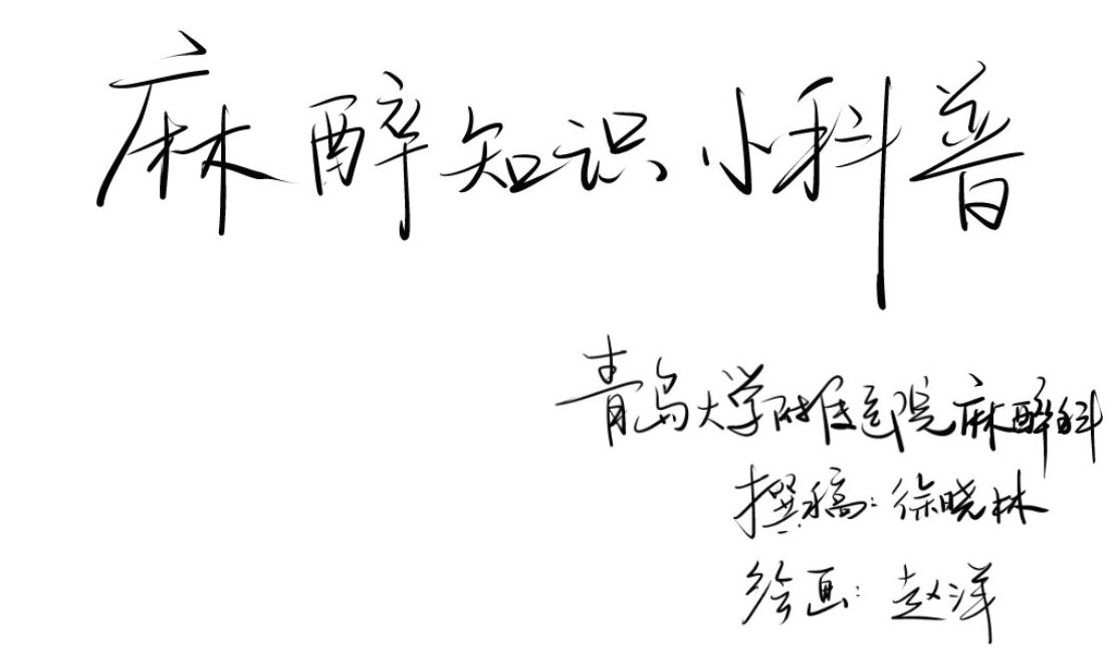 麻醉知识小科普
青岛大学附属医院麻醉科
撰稿:徐晓林
绘画:赵洋